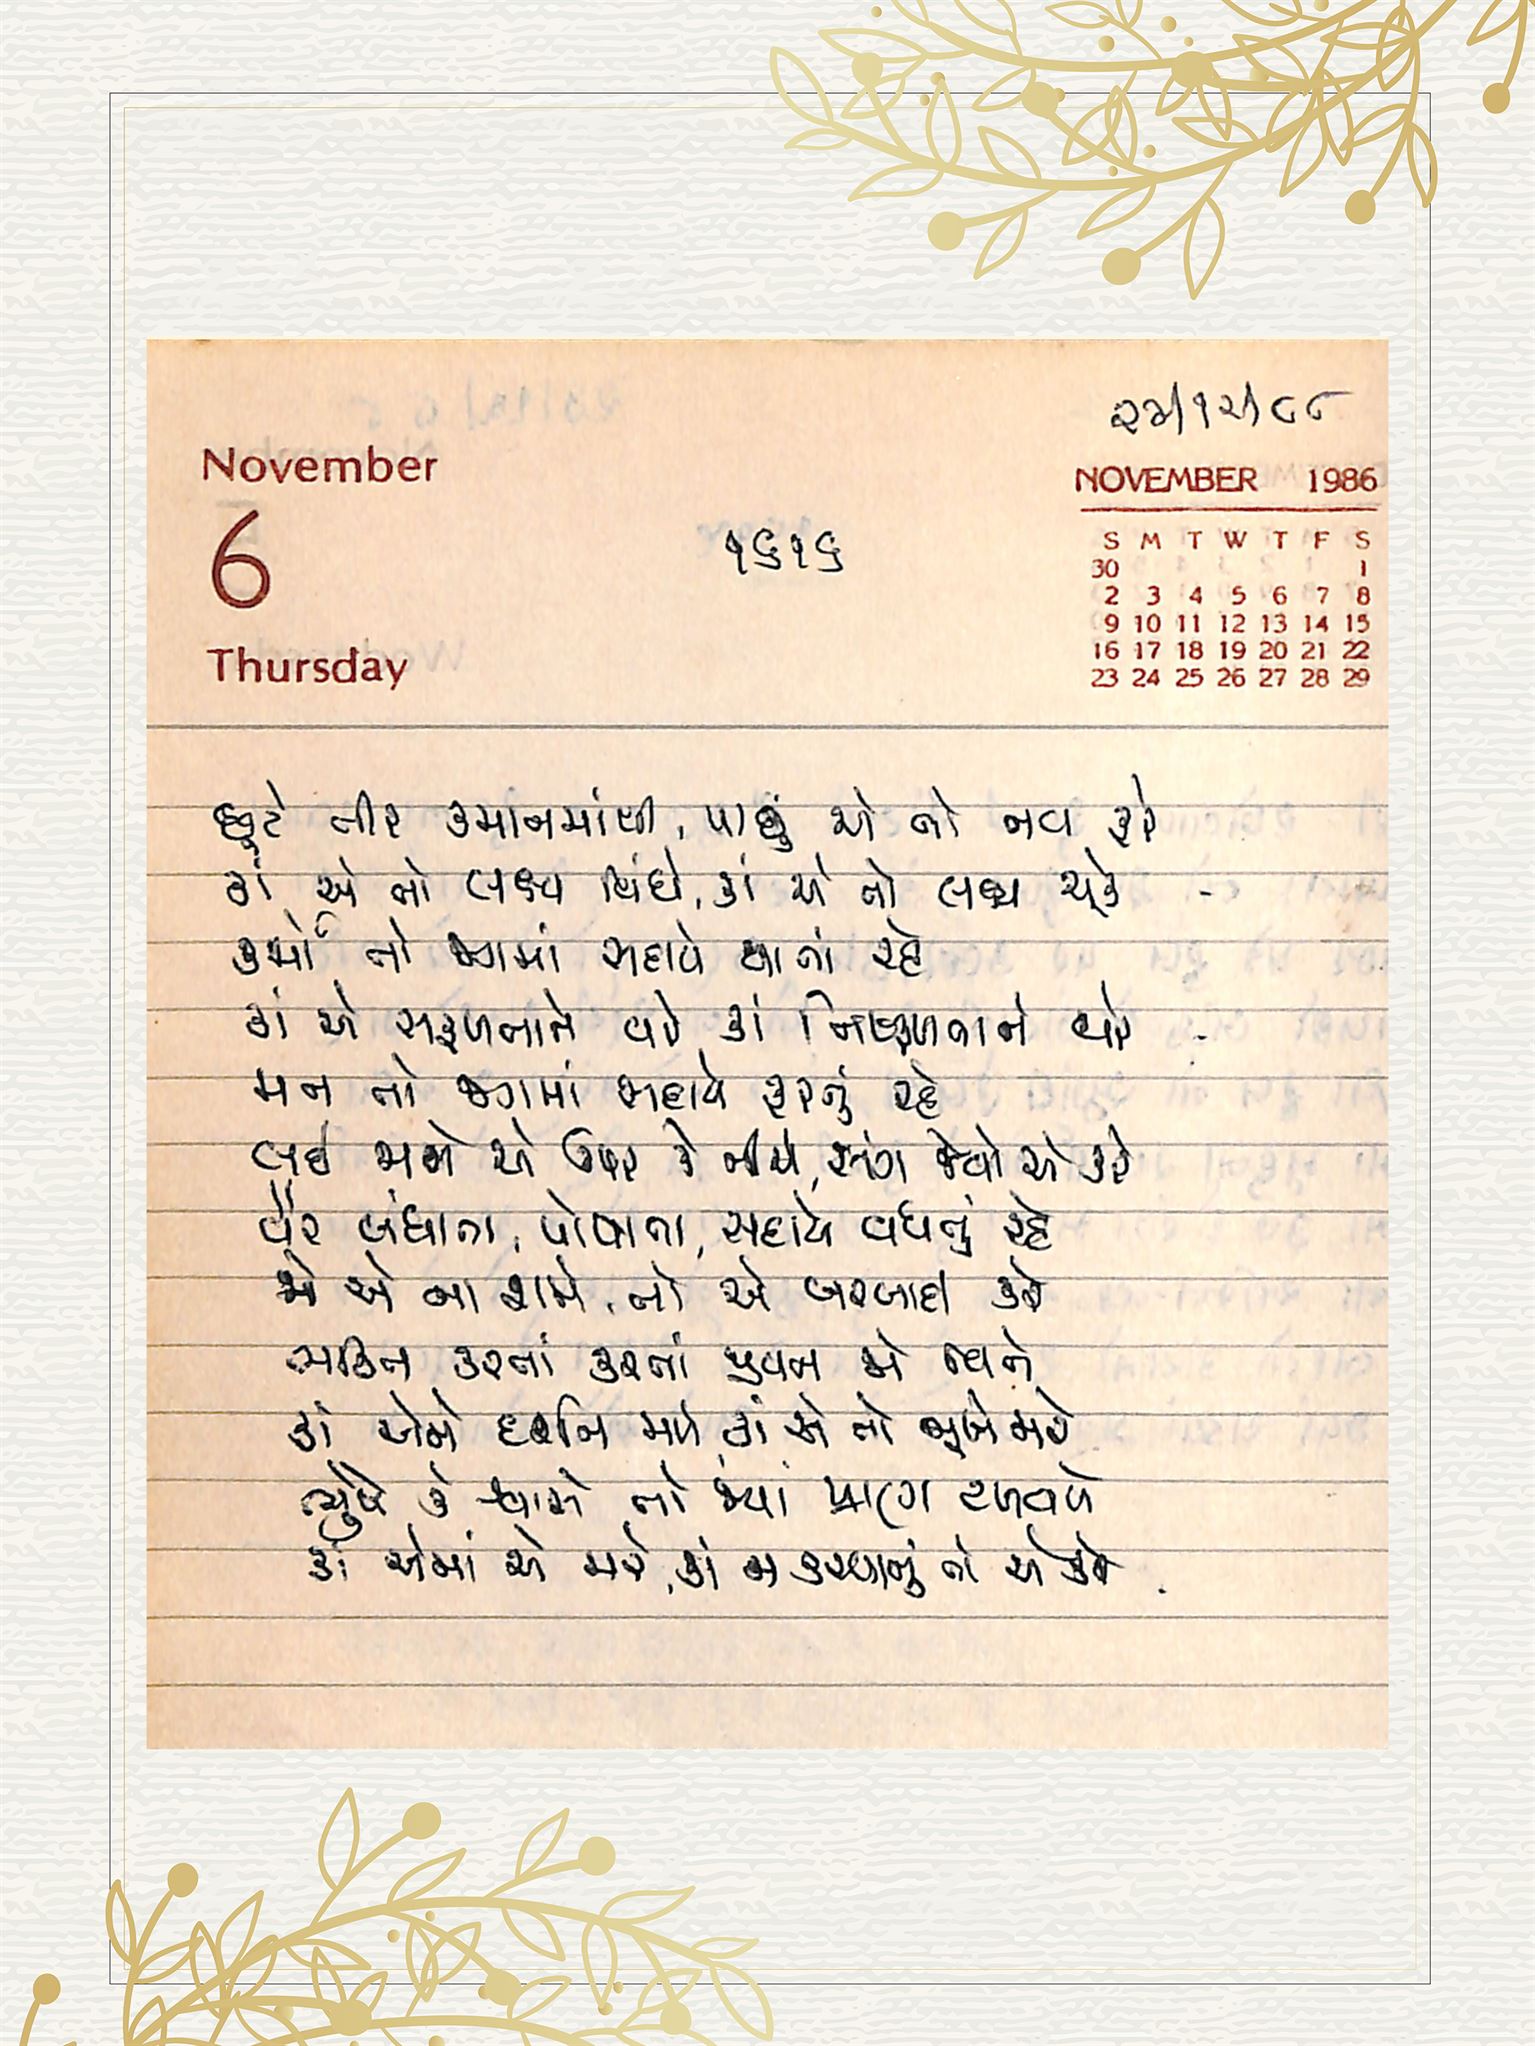 ૨૩/૧૨/૮૮
November
6
Thursday
૧૬૧૬
NOVEMBER 1986
S M T W T F S
30 1
2 3 4 5 6 7 8
9 10 11 12 13 14 15
16 17 18 19 20 21 22
23 24 25 26 27 28 29
છૂટે તીર કમાનમાંથી, પાછું એ તો નવ ફરે
કાં એ તો લક્ષ્ય વિંધે, કાં એ તો લક્ષ્ય ચૂકે -
કર્મો તો જગમાં સદાયે થાતાં રહે
કાં એ સફળતાને વરે કાં નિષ્ફળતાને વરે -
મન તો જગમાં સદાયે ફરતું રહે
લઈ ભમે એ ઉપર કે નીચે, સંગ જેવો એ કરે
વૈર બંધાતા, પોષાતા, સદાયે વધતું રહે
જો એ ના શમે, તો એ બરબાદ કરે
ભક્તિ કરતાં કરતાં જીવન જો વિતે
કાં એને દર્શન મળે કાં એ તો ભૂખે મરે
કે શ્વાસે તો જ્યાં પ્રાણ ટળવળે
કાં એમાં એ મરે, કાં ન કરવાનું તો એ કરે.